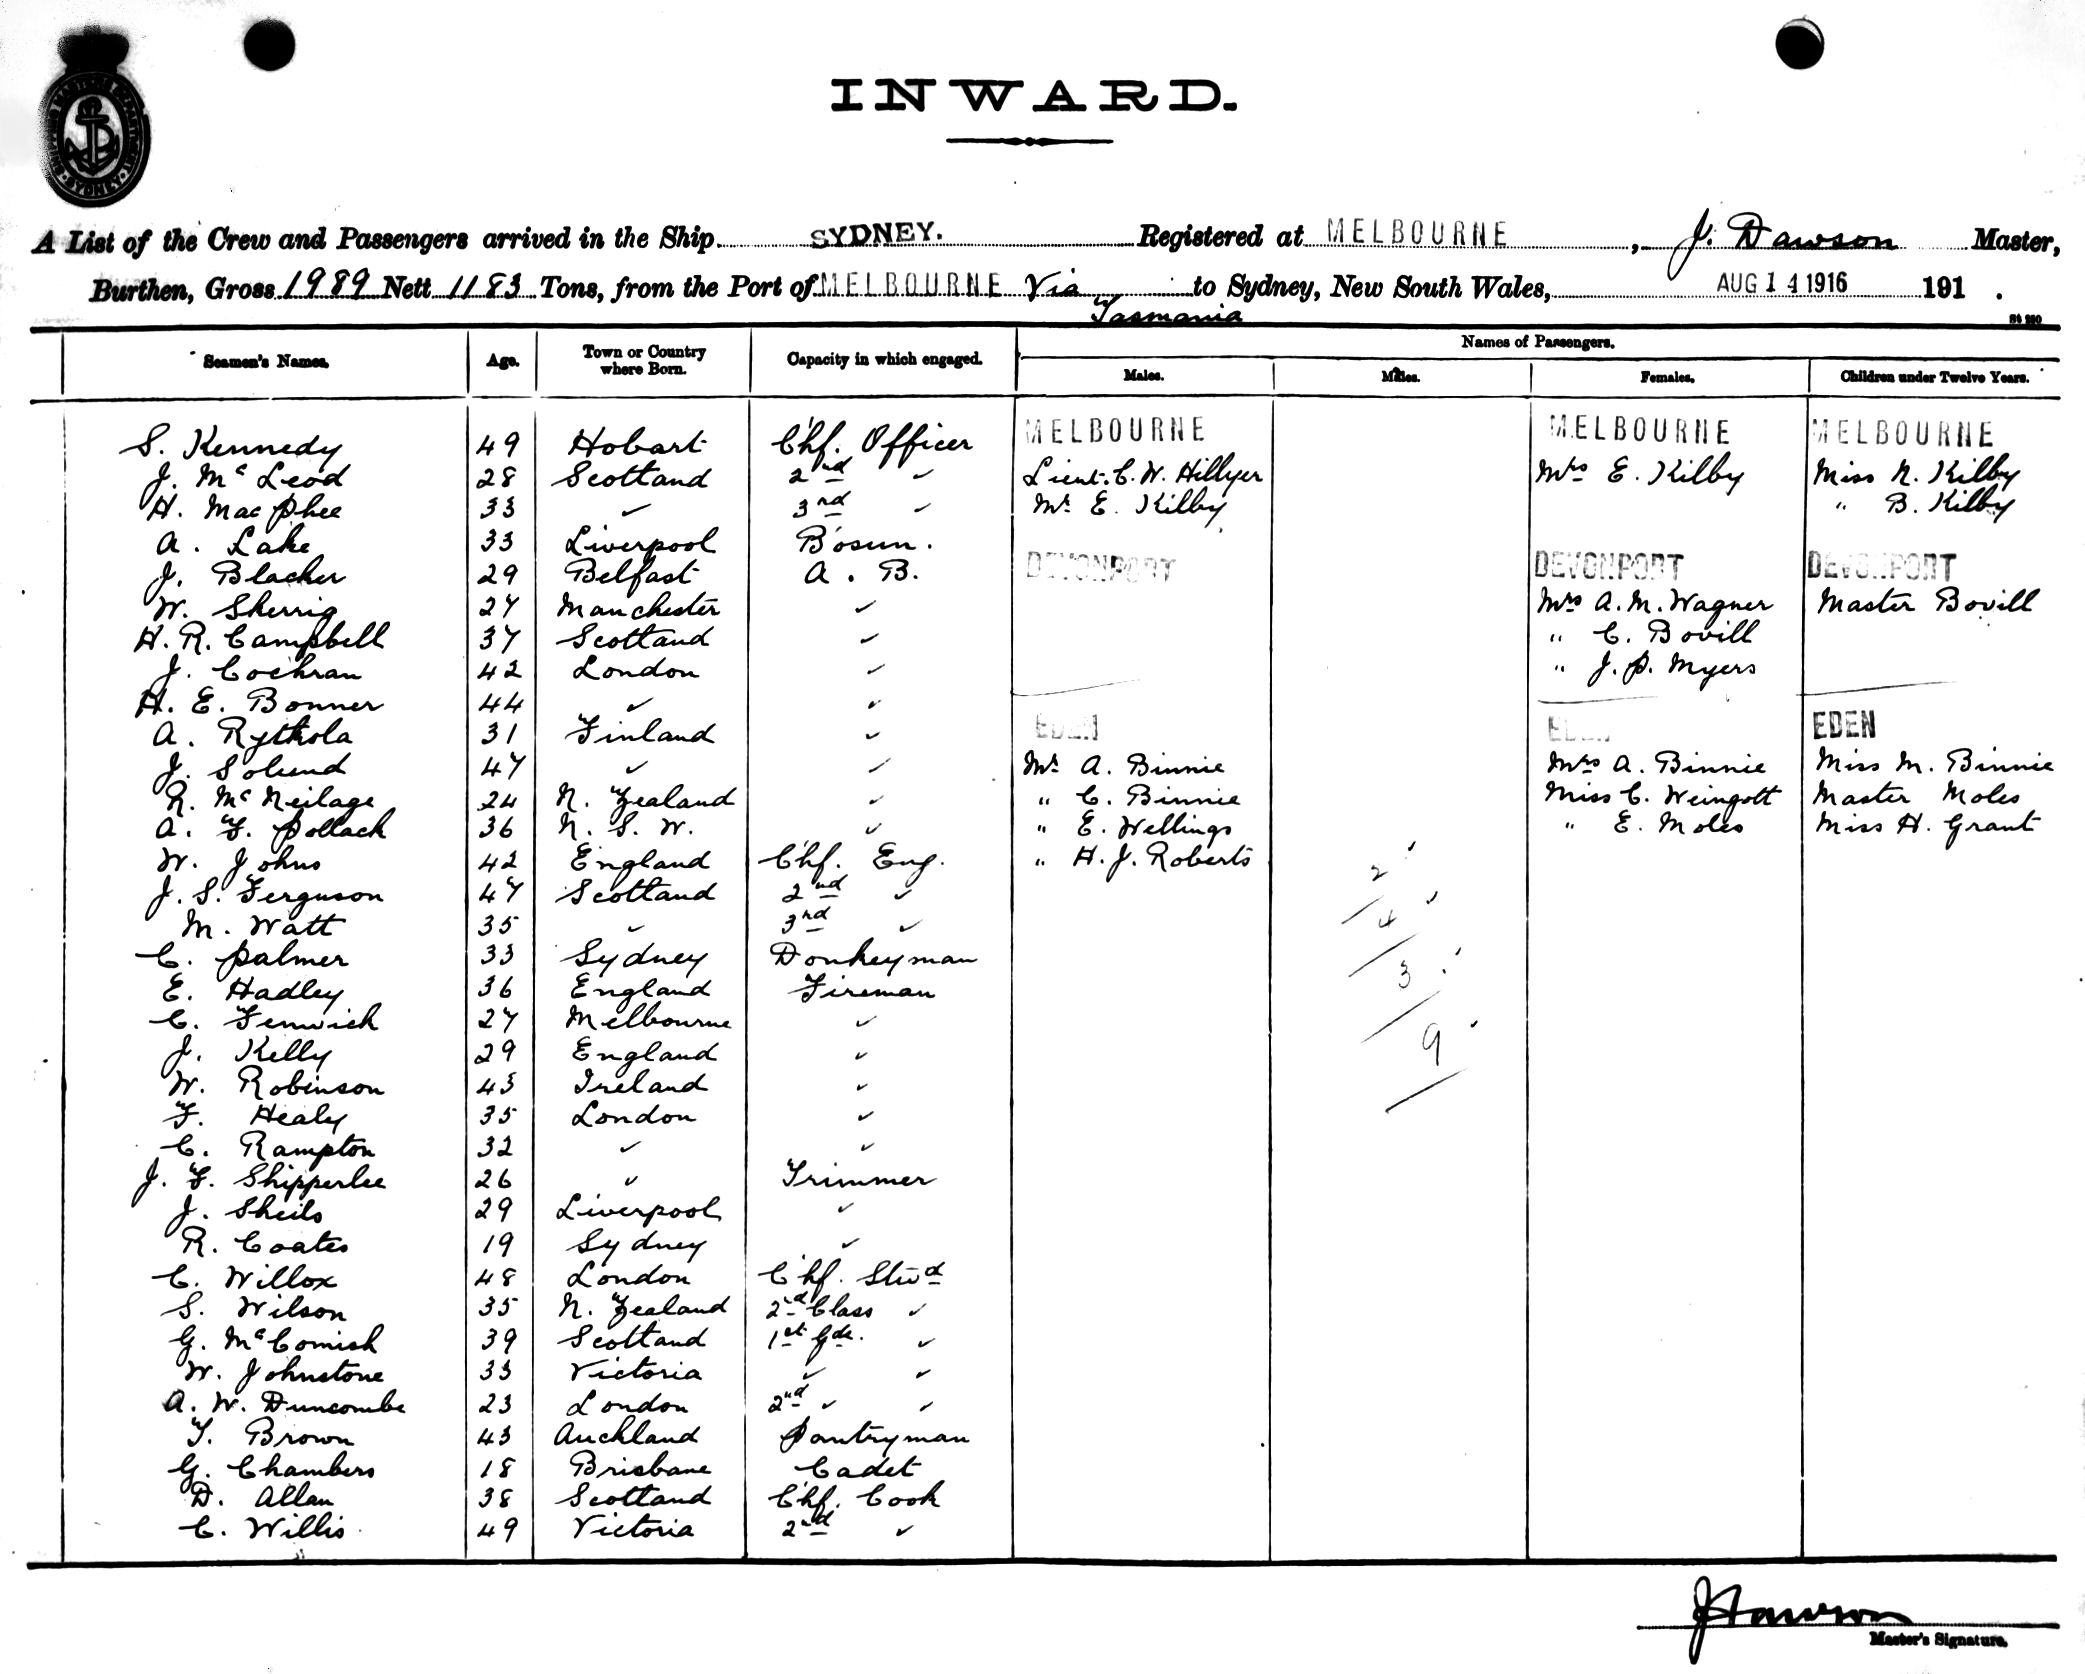 SHIPPING MASTER'S DEPARTMENT · SYDNEY ·
INWARD.
A List of the Crew and Passengers arrived in the Ship SYDNEY. Registered at MELBOURNE, J. Dawson Master,
Burthen, Gross 1989 Nett 1183 Tons, from the Port of MELBOURNE Via Tasmania to Sydney, New South Wales, AUG 14 1916 191 .
Names of Passengers.
Seamen's Names. Age. Town or Country where Born. Capacity in which engaged. Males. Males. Females. Children under Twelve Years.
MELBOURNE MELBOURNE MELBOURNE
S. Kennedy 49 Hobart Chf. Officer
J. McLeod 28 Scotland 2nd " Lieut. C. W. Hillyer Mrs E. Kilby Miss N. Kilby
H. MacPhee 33 " 3rd " Mr. E. Kilby " B. Kilby
A. Lake 33 Liverpool Bosun.
J. Blacker 29 Belfast A. B. DEVONPORT DEVONPORT DEVONPORT
W. Sherrig 27 Manchester " Mrs A. M. Wagner Master Bovill
H. R. Campbell 37 Scotland " " C. Bovill
J. Cochran 42 London " " J. P. Myers
H. E. Bonner 44 " "
A. Rytkola 31 Finland " EDEN EDEN EDEN
J. Solund 47 " " Mr A. Binnie Mrs A. Binnie Miss M. Binnie
R. McNeilage 24 N. Zealand " " C. Binnie Miss C. Weingott Master Moles
A. F. Pollack 36 N. S. W. " " E. Wellings " E. Moles Miss H. Grant
W. Johns 42 England Chf. Eng. " H. J. Roberts
J. S. Ferguson 47 Scotland 2nd " 2
M. Watt 35 " 3rd " 4
C. Palmer 33 Sydney Donkeyman 3
E. Hadley 36 England Fireman
C. Fenwick 27 Melbourne " 9
J. Kelly 29 England "
W. Robinson 43 Ireland "
F. Healy 35 London "
C. Rampton 32 " "
J. F. Shipperlee 26 " Trimmer
J. Sheils 29 Liverpool "
R. Coates 19 Sydney "
C. Willox 48 London Chf. Stwd
S. Wilson 35 N. Zealand 2nd Class "
G. McComish 39 Scotland 1st Gde. "
W. Johnstone 33 Victoria " "
A. W. Duncombe 23 London 2nd " "
T. Brown 43 Auckland Pantryman
G. Chambers 18 Brisbane Cadet
D. Allan 38 Scotland Chf. Cook
C. Willis 49 Victoria 2nd "
J Dawson
Master's Signature.